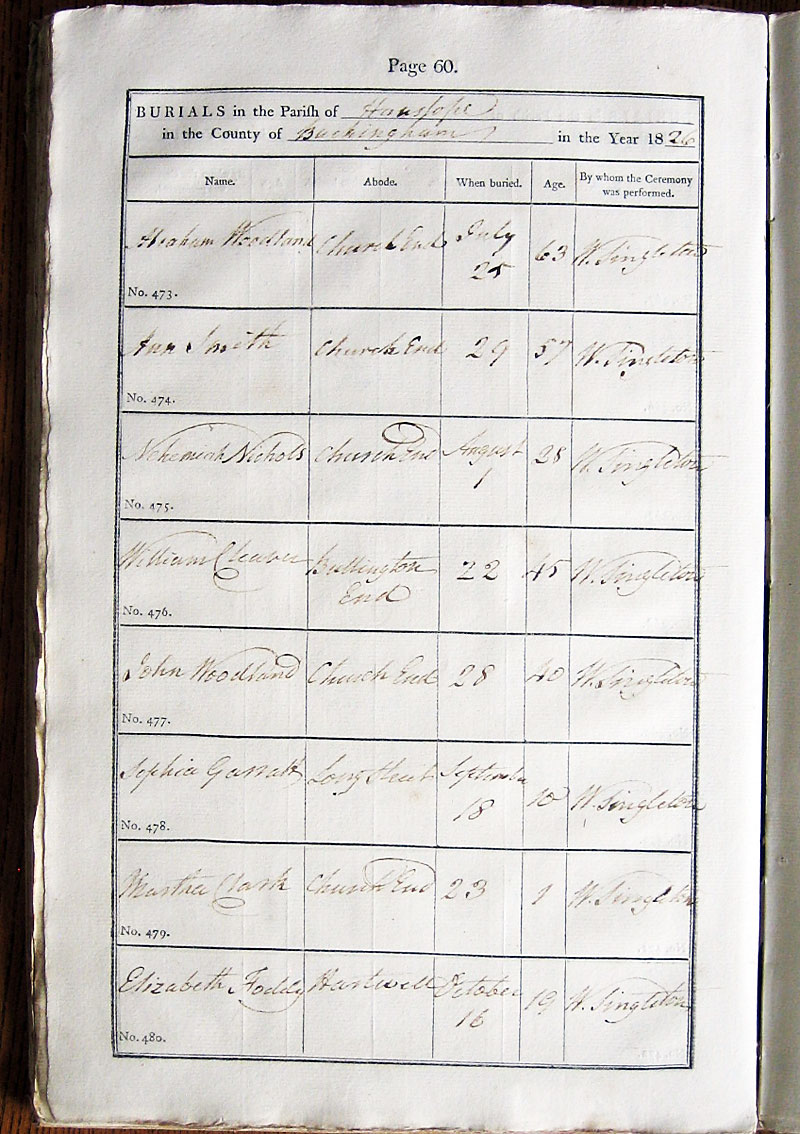 Page 60.
BURIALS in the Parish of Hanslope
in the County of Buckingham in the Year 1826
Name. Abode. When buried. Age. By whom the Ceremony was performed.
Abraham Woodland Church End July 25 63 W. Singleton
No. 473.
Ann Smith Church End 29 57 W. Singleton
No. 474.
Nehemiah Nichols Church End August 1 28 W. Singleton
No. 475.
William Cleaver Bullington End 22 45 W. Singleton
No. 476.
John Woodland Church End 28 40 W. Singleton
No. 477.
Sophia Garratt Long Street September 18 10 W. Singleton
No. 478.
Martha Clark Church End 23 1 W. Singleton
No. 479.
Elizabeth Foddy Hartwell October 16 19 W. Singleton
No. 480.